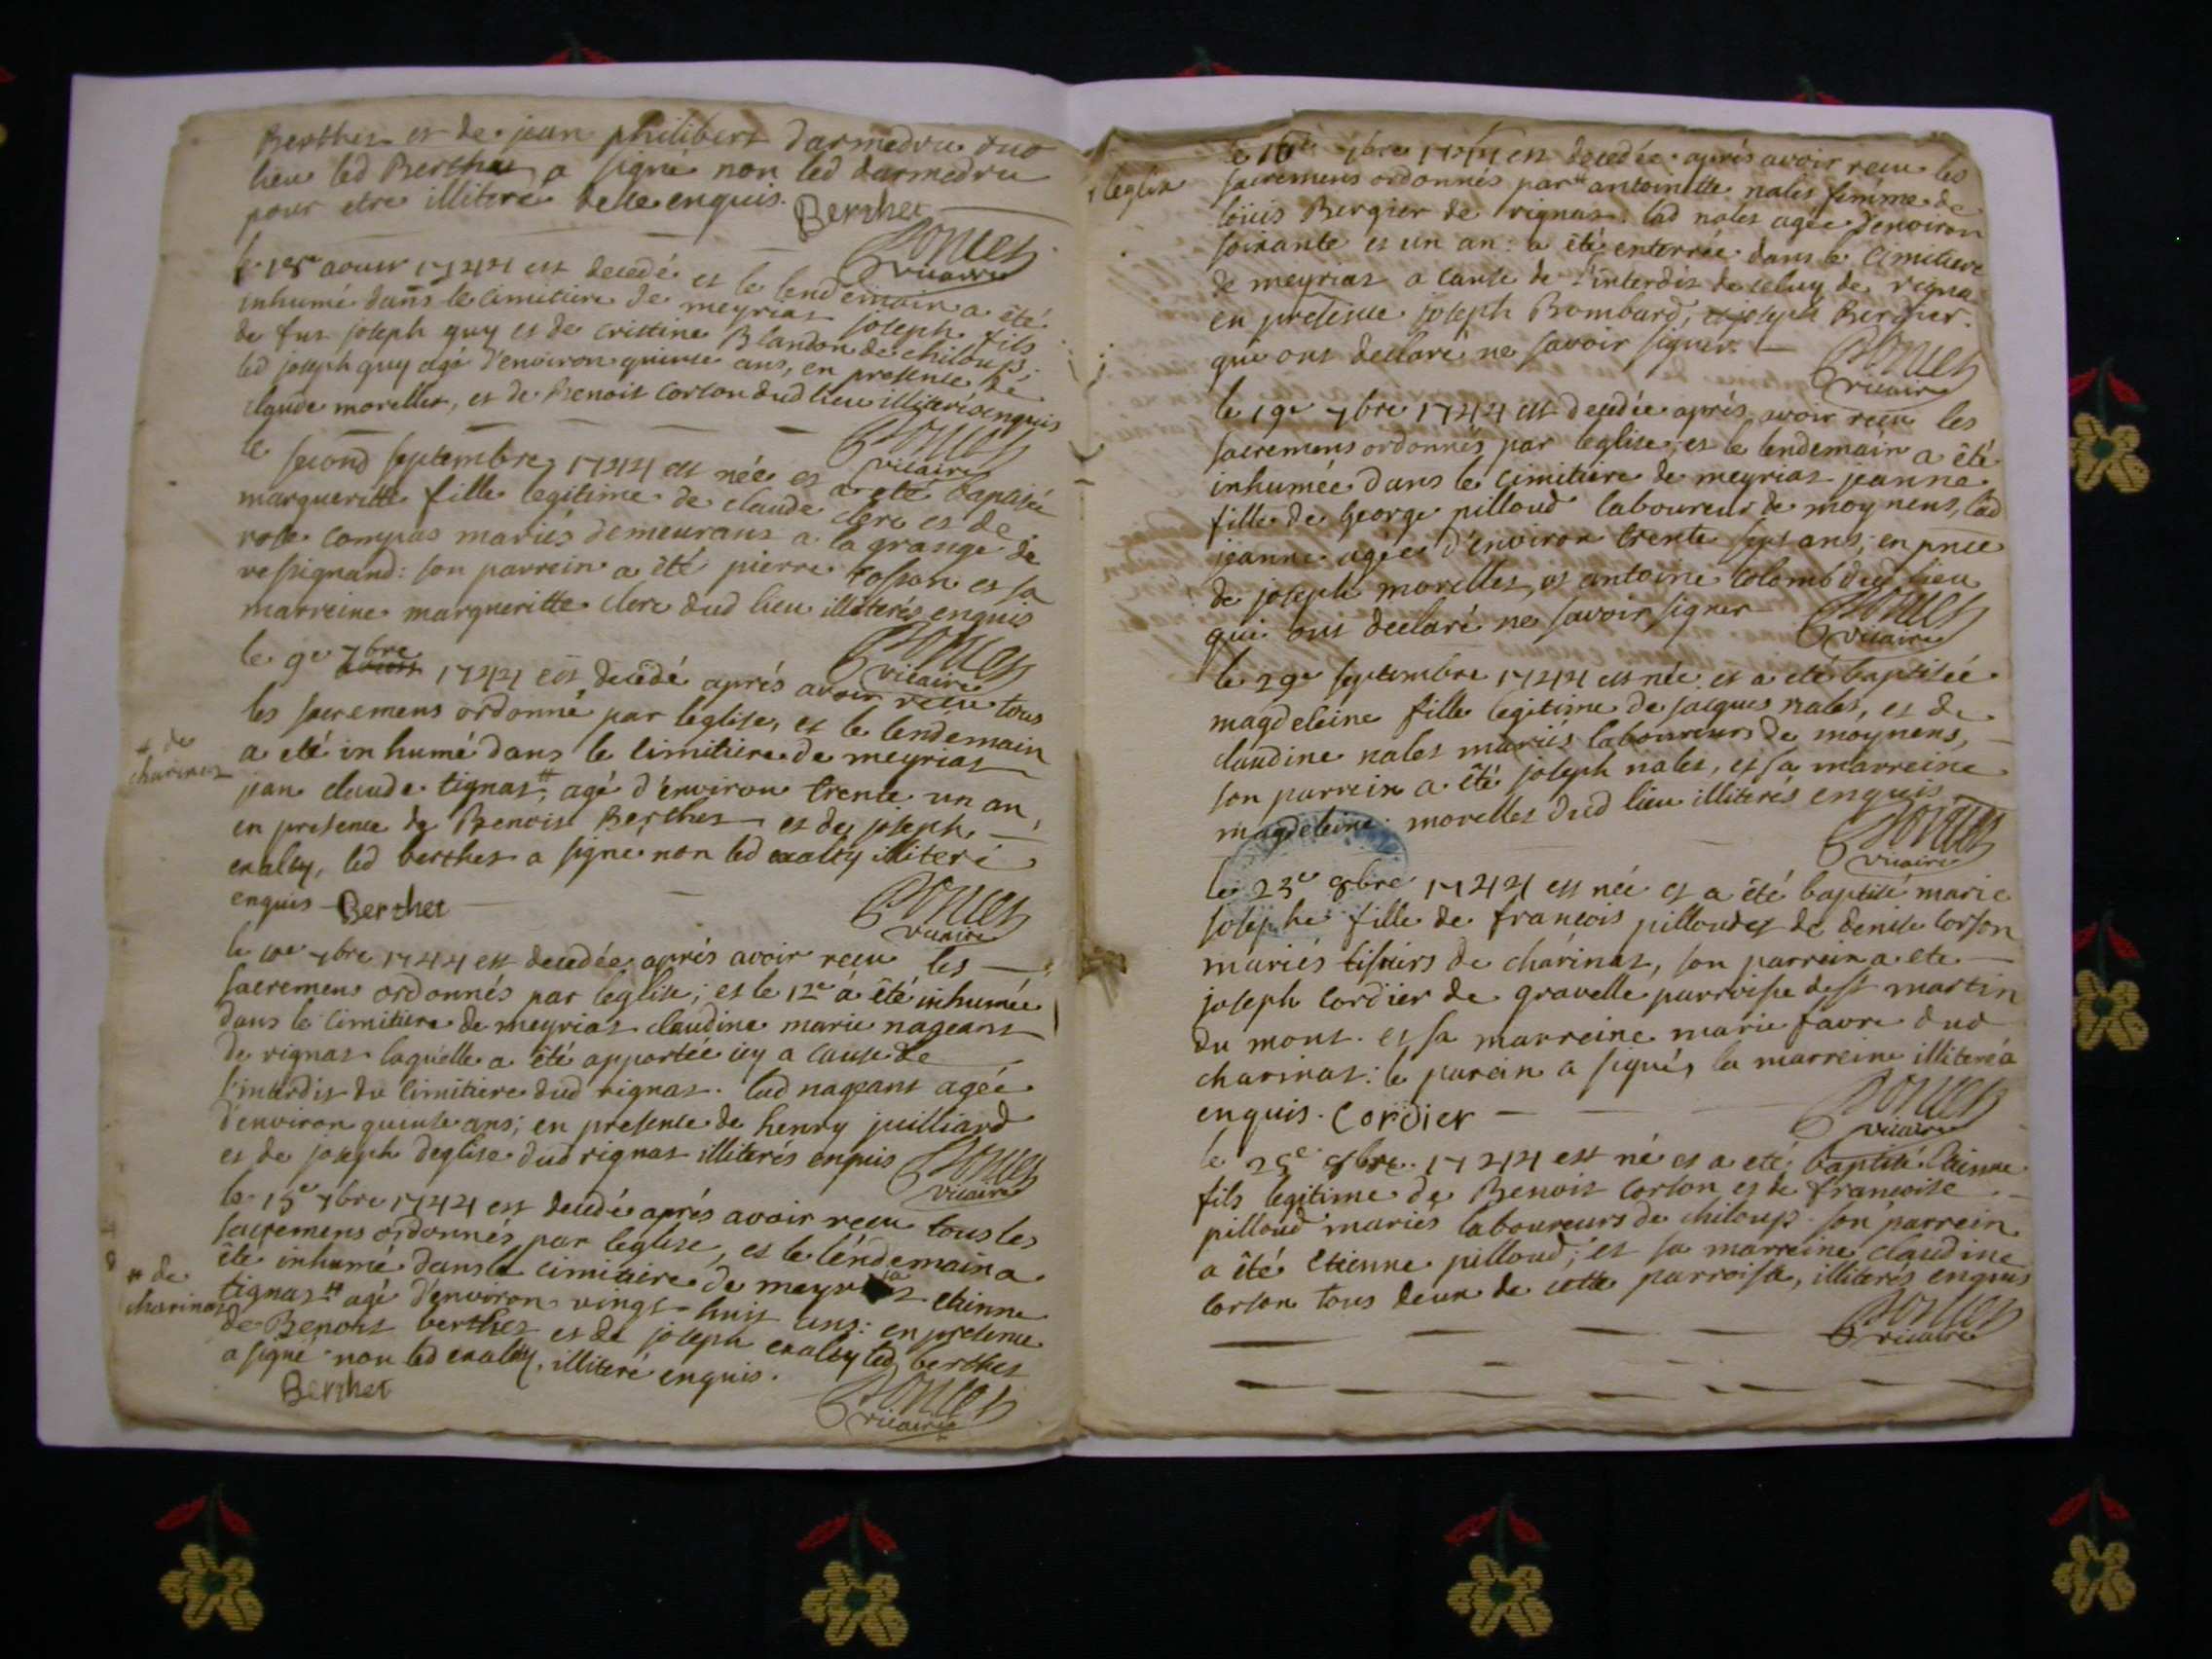 Berthet et de jean philibert darmedru dud
lieu led Berthet a signé non led darmedru
pour etre illiteré de ce enquis. Berthet
vicaire
le 18e aoust 1744 est decedé et le lendemain a été
inhumé dans le cimitiere de meyriat joseph fils
de fut joseph guy et de cristine Blandon de chiloup;
led joseph guy agé d'environ quinse ans, en presence de
claude morellet, et de Benoit Corton dud lieu illiterés enquis
vicaire
le second septembre 1744 est née et a eté baptisée
margueritte fille legitime de claude clerc et de
rose compas mariés demeurans a la grange de
ressignand: son parrein a été pierre cosson et sa
marreine margueritte clerc dud lieu illiterés enquis
vicaire
le 9e 7bre 1744 est decedé aprés avoir reçu tous
les sacremens ordonné par leglise, et le lendemain
a eté inhumé dans le cimitiere de meyriat
# de
charinas
jean claude tignat # agé d'environ trente un an,
en presence de Benoit Berthet et de joseph
exalty, led berthet a signé non led exalty illiteré
enquis Berthet
vicaire
le 10e 7bre 1744 est decedée aprés avoir reçu les
sacremens ordonnés par leglise; et le 12e a été inhumée
dans le cimitiere de meyriat claudine marie nageant
de rignat laquelle a été apportée icy a cause de
l'interdit du cimitiere dud rignat. lad nageant agée
d'environ quinse ans; en presence de henry juilliard
et de joseph deglise dud rignat illiterés enquis
vicaire
le 15e 7bre 1744 est decedé aprés avoir reçu tous les
sacremens ordonnés par leglise, et le lendemain a
été inhumé dans le cimitiere de meyriat etienne
# de
charinas
tignat # agé d'environ vingt-huit ans: en presence
de Benoit berthet et de joseph exalty led berthet
a signé non led exalty, illiteré enquis.
Berthet
vicaire
le 16e 7bre 1744 est decedée aprés avoir reçu les
leglise
sacremens ordonnés par # antoinette nalet femme de
loüis Bergier de rignat. lad nalet agée d'environ
soixante et un an: a été enterrée dans le cimitiere
de meyriat a cause de l'interdit de celuy de rigna
en presence joseph Bombard, et joseph Bergier.
qui ont declaré ne savoir signer.
vicaire
le 19e 7bre 1744 est decedée aprés avoir reçu les
sacremens ordonnés par leglise, et le lendemain a été
inhumée dans le cimitiere de meyriat jeanne
fille de George pilloud laboureur de moynens, lad
jeanne agée d'environ trente sept ans; en pnce
de joseph morellet, et antoine Colomb dud lieu
qui ont declaré ne savoir signer
vicaire
le 29e septembre 1744 est née et a eté baptisée
magdeleine fille legitime de jacques nalet, et de
claudine nalet mariés laboureurs de moynens,
son parrein a été joseph nalet, et sa marreine
magdeleine morellet dud lieu illiterés enquis
vicaire
le 23e 8bre 1744 est née et a été baptisé marie
josephe fille de francois pilloud et de denise Corton
mariés tissiers de charinat, son parrein a ete
joseph Cordier de gravelle parroisse de st martin
du mont. et sa marreine marie favre dud
charinat: le parein a signés, la marreine illiterée
enquis. Cordier
vicaire
le 25e 8bre. 1744 est né et a eté baptisé Etienne
fils legitime de Benoit Corton et de francoise
pilloud mariés laboureurs de chiloup. son parrein
a été Etienne pilloud; et sa marreine claudine
Corton tous deux de cette parroisse, illiterés enquis
vicaire